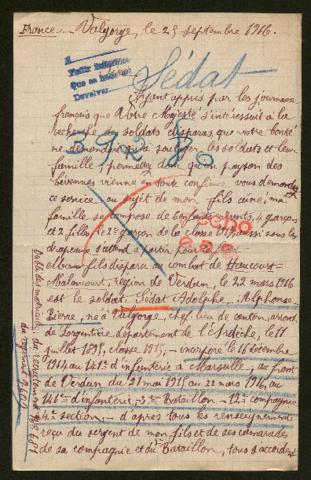 France — Valgorge, le 25 septembre 1916.
Sédat
Ayant appris par les journaux
français que Votre Majesté s'intéressait à la
recherche des soldats disparus, que votre bonté
ne demandait qu'à soulager les soldats et leur
famille, permettez donc qu'un paysan des
Cévennes vienne en toute confiance vous demander
ce service au sujet de mon fils aîné, ma
famille se compose de 6 enfants vivants, 4 garçons
et 2 filles, le 2e garçon de la classe aussi sous les
drapeaux s'attend à partir pour le
et brave fils disparu au combat de Haucourt-
Malancourt, région de Verdun, le 22 mars 1916
est le soldat Sédat Adolphe, Alphonse
Pierre, né à Valgorge, chef-lieu de canton, arrond.
de Largentière département de l'Ardèche, le 11
juillet 1895, classe 1915, — incorporé le 16 décembre
1914 au 141e d'infanterie à Marseille, au front
de Verdun du 21 mai 1915 au 22 mars 1916, au
d'infanterie, 3me Bataillon — 12e compagnie
4e section — d'après tous les renseignements
reçu du sergent de mon fils et de ses camarades
de sa compagnie et du Bataillon, tous s'accordent
292